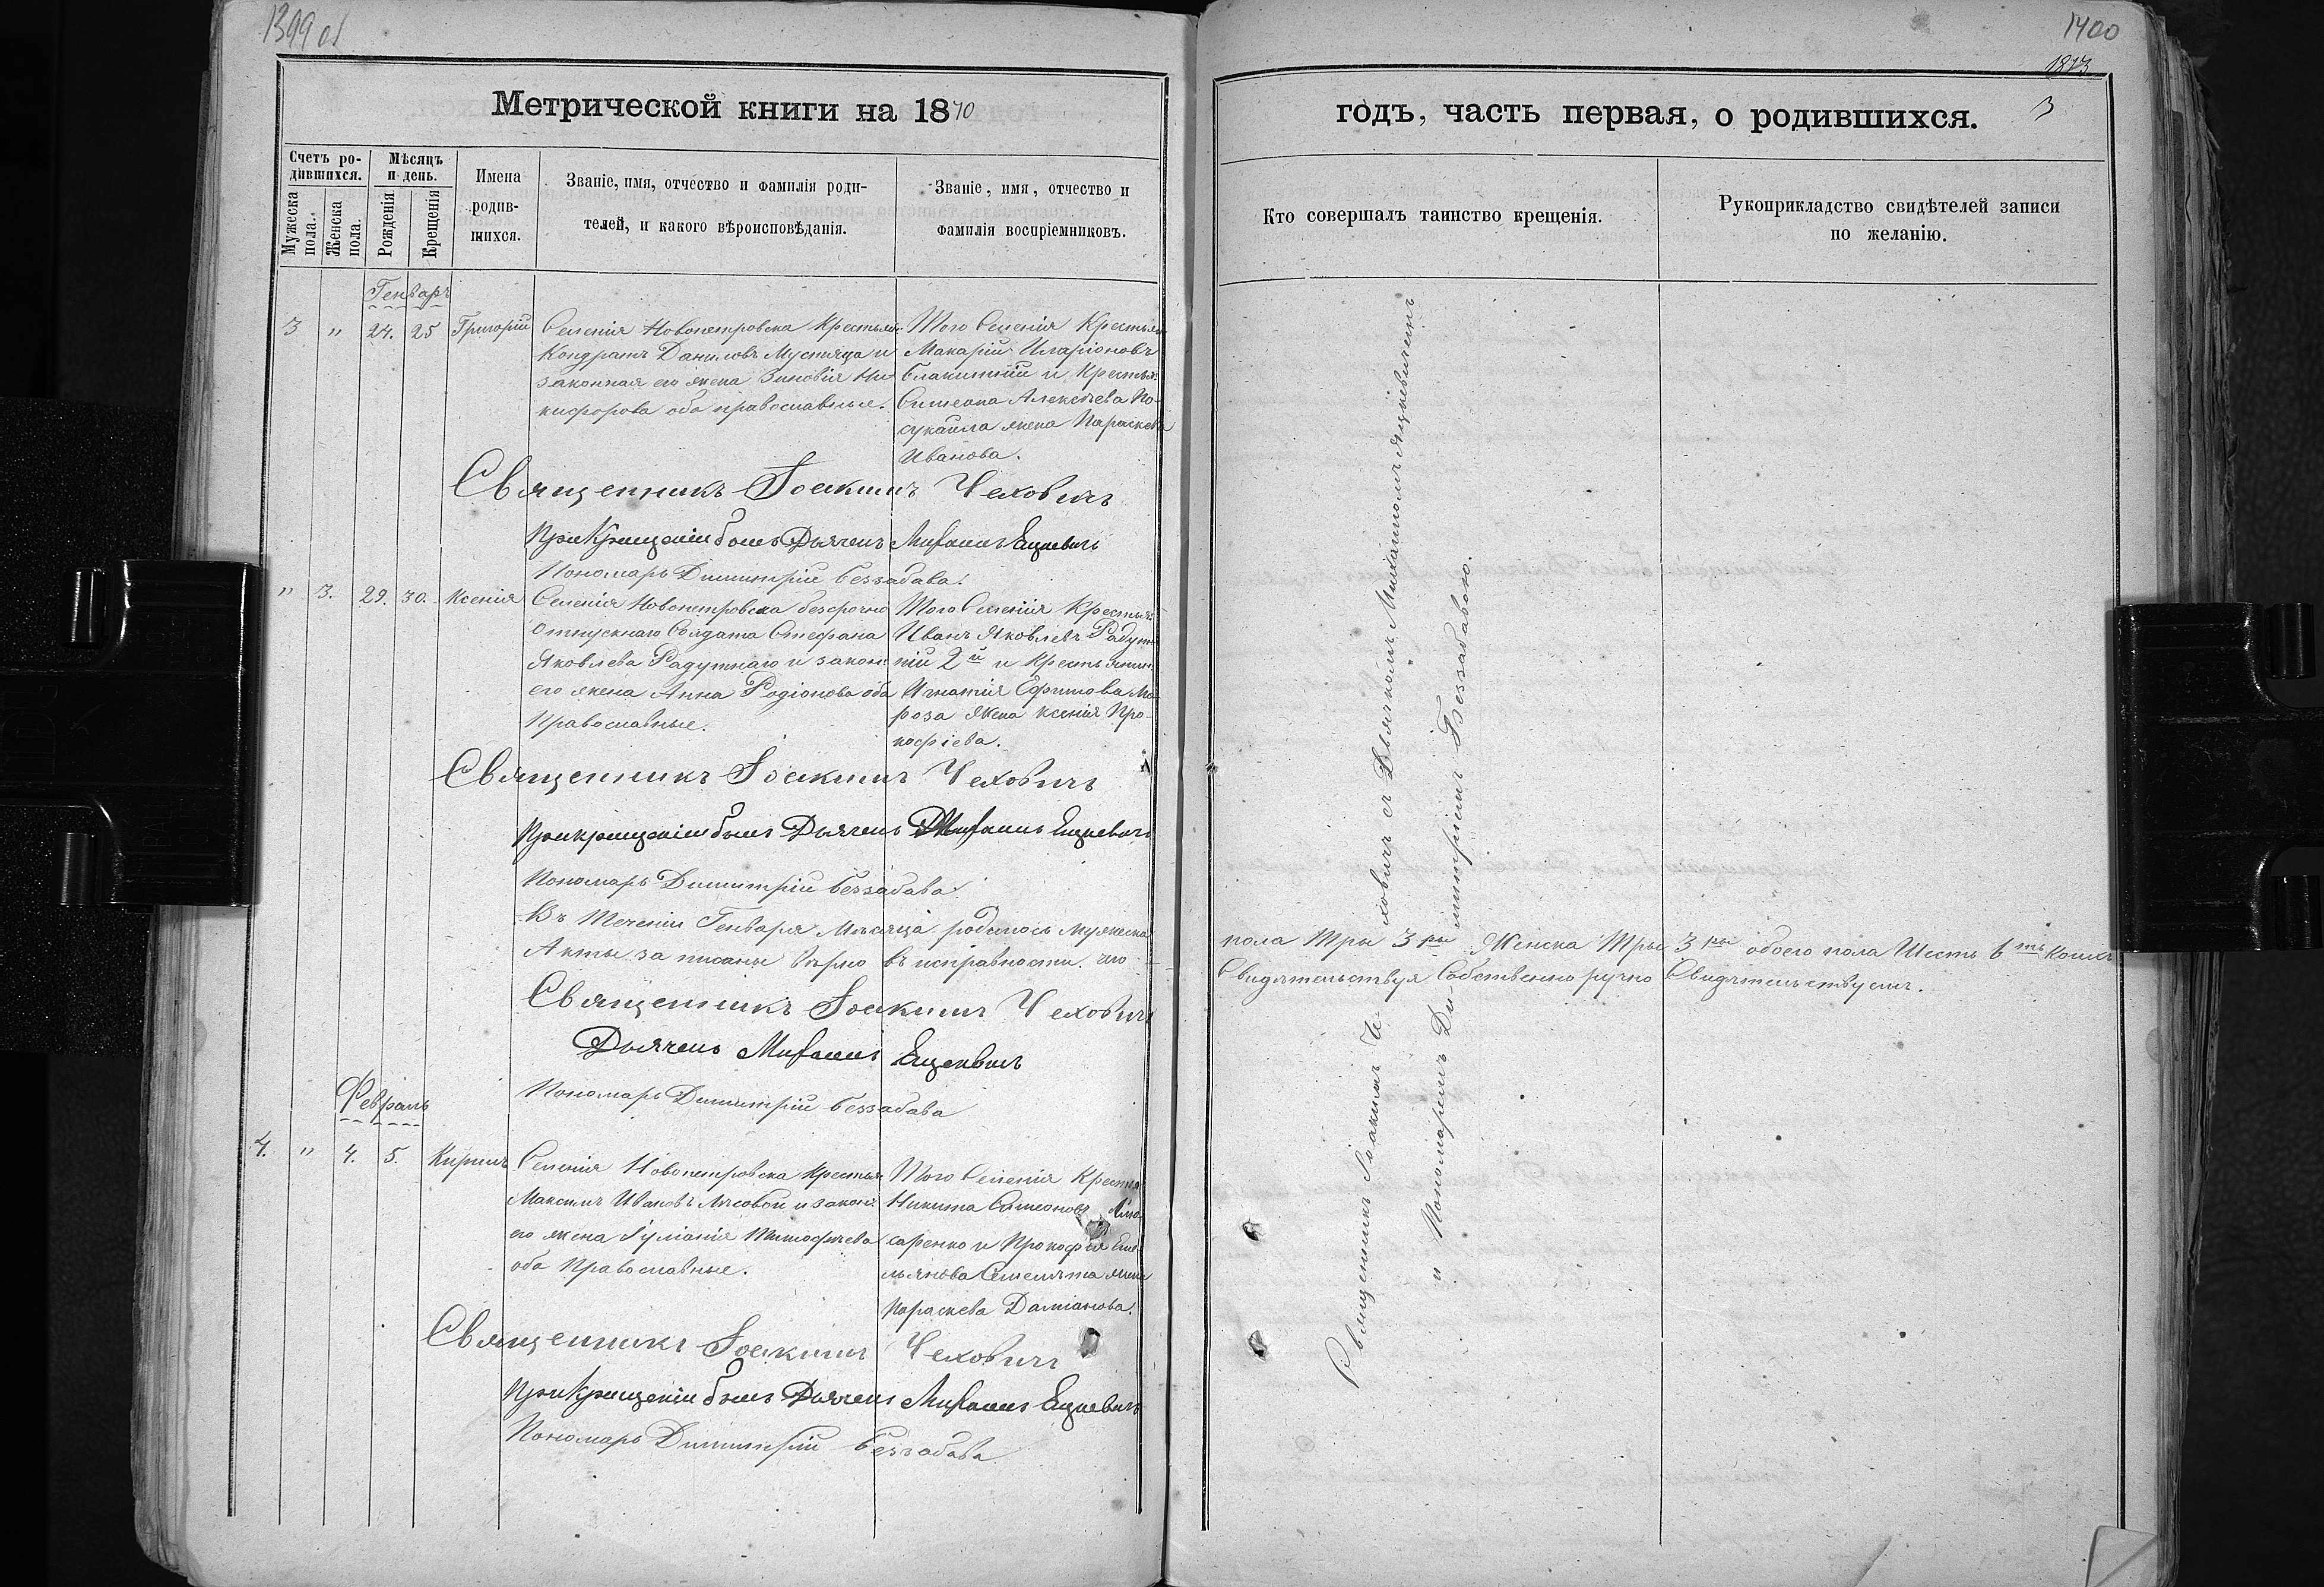 1399 об
Метрической книги на 1870
Счетъ ро-
дившихся.
Мужеска пола.
Женска пола.
Мѣсяцъ
и день.
Рожденія
Крещенія
Имена
родив-
шихся.
Званіе, имя, отчество и фамилія роди-
телей, и какого вѣроисповѣданія.
Званіе, имя, отчество и
фамилія воспріемниковъ.
Генварь
3 " 24. 25 Григорій
Селенія Новопетровска Крестьян:
Кондратъ Даниловъ Мустяца и
законная его жена Зиновія Ни-
кифорова оба православные.
Того Селенія Крестьян
Макарій Иларіоновъ
Блакитній и Крестьян:
Симеона Алексѣева По-
сукайла жена Параскева
Иванова.
Священникъ Іоакимъ Чеховичъ
При Крещеніи былъ Дьячекъ Михаилъ Яцкевичъ
Пономарь Димитрій Беззабава.
" 3. 29. 30. Ксенія
Селенія Новопетровска безсрочно
отпускнаго Солдата Стефана
Яковлева Радутнаго и закон:
его жена Анна Родіонова оба
Православные.
Того Селенія Крестьян:
Иванъ Яковлевъ Радут-
ній 2й и Крестьянин:
Игнатія Ефимова Мо-
роза жена Ксенія Про-
кофіева.
Священникъ Іоакимъ Чеховичъ
При крещеніи былъ Дьячекъ Михаилъ Яцкевичъ
Пономарь Димитрій Беззабава.
Въ Теченіи Генваря Мѣсяца родилось мужеска
Акты записаны вѣрно въ исправности. что
Священникъ Іоакимъ Чеховичъ
Дьячекъ Михаилъ Яцкевичъ
Пономарь Димитрій Беззабава
Февраль
4. " 4. 5. Кирилъ
Селенія Новопетровска Крестьян
Максимъ Ивановъ Лѣсовой и закон:
его жена Іуліанія Тимофѣева
оба Православные.
Того Селенія Крестьян
Никита Симеоновъ
саренко и Прокофія Еме-
льянова жена
Параскева Даміанова.
Священникъ Іоакимъ Чеховичъ
При Крещеніи былъ Дьячекъ Михаилъ Яцкевичъ
Пономарь Димитрій Беззабава
1400
1873
3
годъ, часть первая, о родившихся.
Кто совершалъ таинство крещенія.
Рукоприкладство свидѣтелей записи
по желанію.
Священникъ Іоакимъ Чеховичъ съ Дьячкомъ Михаиломъ Яцкевичемъ
и Пономаремъ Димитріемъ Беззабавою.
пола Три 3ри Женска Три 3ри обоего пола Шесть 6ть коихъ
Свидѣтельствуя Собственноручно Свидѣтельствуемъ.